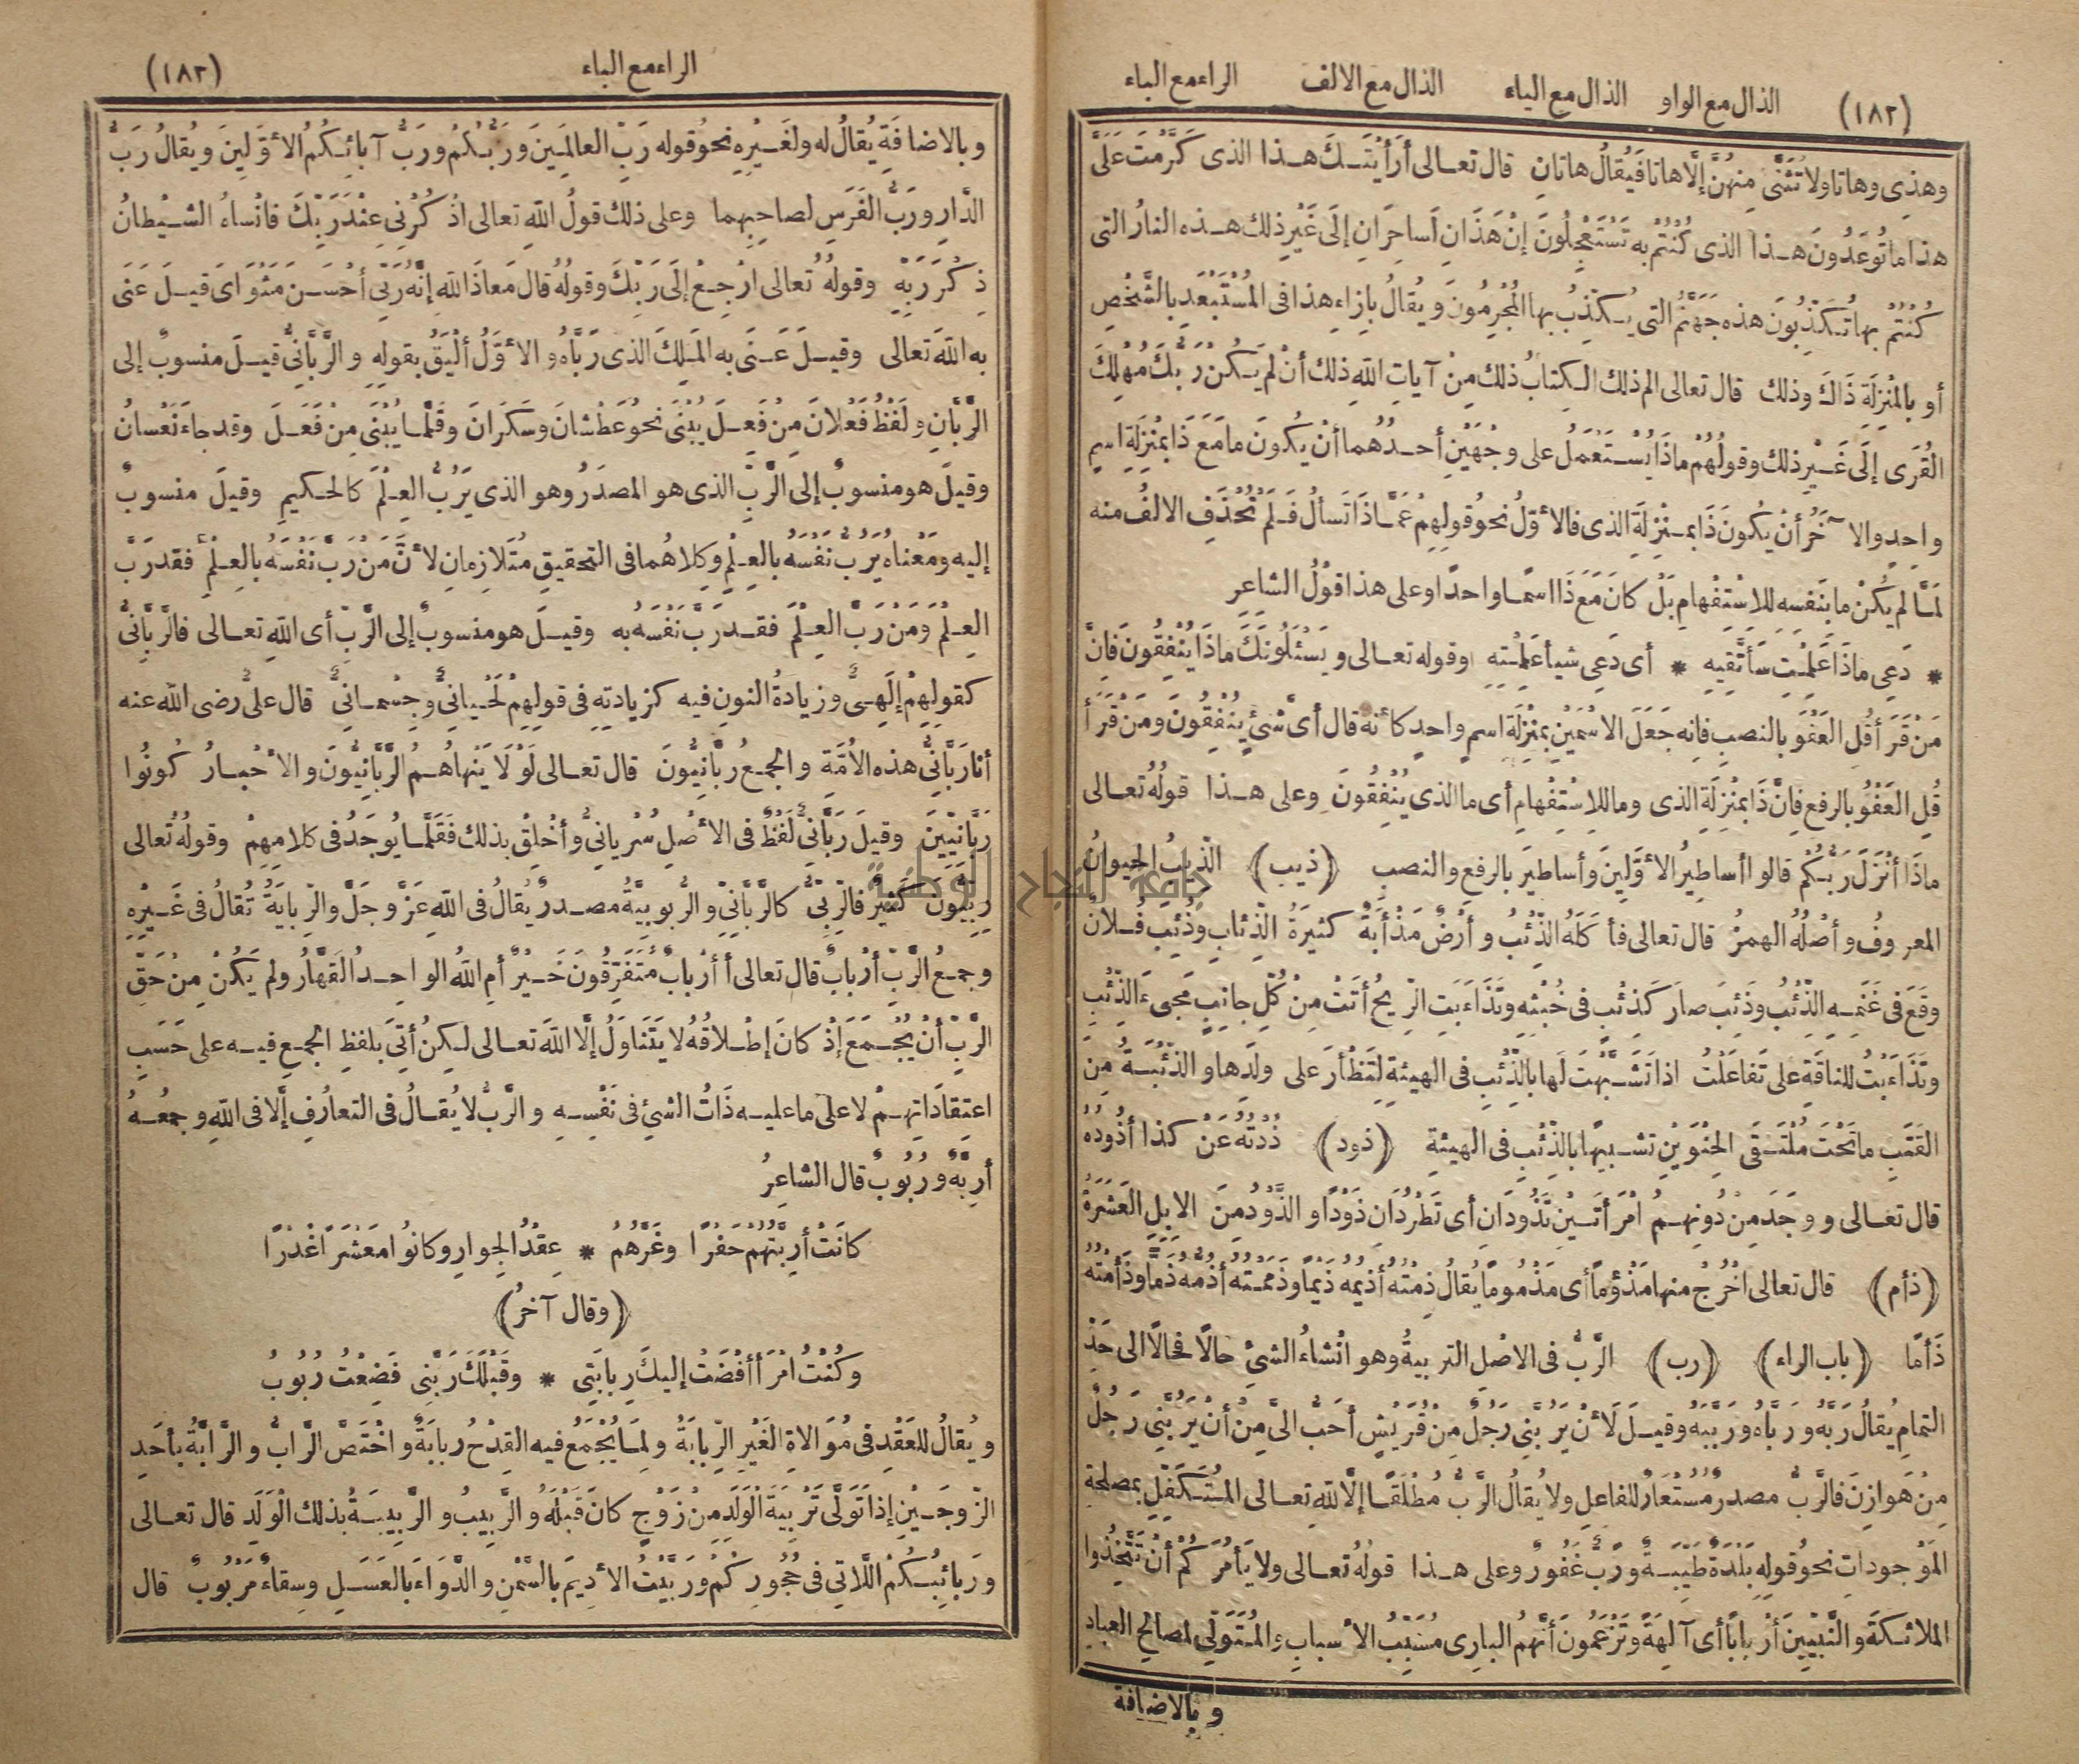 (١٨٢) الذال مع الواو الذال مع الياء الذال مع الالف الراء مع الباء
وهذِى وهاتا ولا تُثَنَّى مِنهُنَّ إلَّا هاتا فَيُقالُ هاتانِ قال تعـالى أَرَأَيْتَـكَ هـذا الذى كَرَّمْتَ عَلَىَّ
هذا ما تُوعَدُونَ هـذا الذى كُنْتُمْ به تَسْتَعْجِلُونَ إنْ هَذَانِ لَساحِرَانِ إلَى غَيْرِ ذلك هـذه النارُ التى
كُنْتُمْ بها تُـكَذِّبُونَ هذه جَهَنَّمُ التى يُـكَذِّبُ بها المُجْرِمُونَ ويُقالُ بازاءِ هذا فى المُسْتَبْعَدِ بالشَّخْصِ
أو بالمَنْزِلَةِ ذَاكَ وذلك قال تعالى الم ذلك الـكِتابُ ذلك مِنْ آياتِ اللهِ ذلك أنْ لم يَـكُنْ رَبُّكَ مُهْلِكَ
القُرَى إلَى غَـيْرِ ذلك وقولُهُمْ ماذَا يُسْـتَعْمَلُ على وجْهَيْنِ أحـدُهُما أنْ يكُونَ ما مَعَ ذَا بمنْزِلَةِ اسمٍ
واحِدٍ والا ٓخَرُ أنْ يكُونَ ذَا بمـنْزِلَةِ الذى فالأوّلُ نحوُ قولِهِم عَمَّـاذَا تَسألُ فَـلَمْ تُحْذَفِ الالفُ منه
لَمَّا لم يكُنْ ما بنَفسه للاسْتِفْهامِ بَلْ كانَ مَعَ ذَا اسمًـا واحدًا وعلى هذا قَوْلُ الشاعر
* دَعِى ماذَا عَلِمْتِ سَأَتَّقِيهِ * أى دَعِى شيأ عَلِمْتِه وقوله تعـالى ويَسْئَلُونَكَ ماذَا يُنْفِقُونَ فانّ
مَنْ قَرَأ قُلِ العَفْوَ بالنصبِ فانه جَعَلَ الاسْمَيْنِ بمنْزِلَةِ اسمٍ واحدٍ كأنه قال أىَّ شىْءٍ يُنْفِقُونَ ومَنْ قَرَأ
قُلِ العَفْوُ بالرفعِ فانَّ ذَا بمنْزِلَةِ الذى وما للاسْتِفْهامِ أى ما الذى يُنْفِقُونَ وعلى هـذا قولُهُ تعـالى
ماذَا أنْزَلَ رَبُّـكُمْ قالوا أساطِيرُ الأوَّلِينَ وأساطيرَ بالرفعِ والنصبِ (ذيب) الذِّيبُ الحيوانُ
المعروفُ وأصْلُهُ الهمزُ قال تعالى فأكَلَهُ الذِّئْبُ وأرْضٌ مَذْأَبَةٌ كثيرَةُ الذِّئابِ وذُئِبَ فُـلانٌ
وقَعَ فى غَنَمِـهِ الذِّئْبُ وذَئِبَ صارَ كَذِئْبٍ فى خُبْثِه وتَذَاءَبَتِ الرِّيحُ أتَتْ مِنْ كُلِّ جانِبٍ مَجِىءَ الذِّئْبِ
وتَذَاءَبْتُ للناقَةِ على تَفاعَلْتُ اذا تَشَـبَّهْتَ لَها بالذِّئْبِ فى الهيئةِ لتَظْأرَ على ولَدِها والذِّئْبَـةُ مِن
القَتَبِ ما تَحْتَ مُلْتَـقَى الحِنْوَيْنِ تشـبيهًا بالذِّئْبِ فى الهيئةِ (ذود) ذُدْتُهُ عَنْ كذا أذُودُهُ
قال تعـالى ووجَدَ مِنْ دُونِهـمُ امْرَأتَـيْنِ تَذُودَانِ أى تَطْرُدَانِ ذَوْدًا والذَّوْدُ مِنَ الابِلِ العَشَرَةُ
(ذأم) قال تعالى اخْرُجْ منها مَذْؤُمًا أى مَذْمُومًا يُقالُ ذِمْتُهُ أذِيمُهُ ذَيْمًا وذَمَمْتُهُ أذُمُّهُ ذَمًّا وذَأَمْتُهُ
ذَأْمًا (باب الراء) (رب) الرَّبُّ فى الاصْلِ التربيةُ وهو انْشاءُ الشىْءِ حالاً فحالاً الى حَدِّ
التمامِ يُقالُ رَبَّهُ ورَبَّاهُ ورَبَّبَهُ وقيـلَ لَأنْ يَرُبَّنِى رَجُلٌ مِنْ قُرَيْشٍ أحَبُّ الىَّ مِنْ أنْ يَرُبَّنِى رَجُلٌ
مِنْ هَوازِنَ فالرَّبُّ مصدرٌ مُسْتَعارٌ للفاعلِ ولا يُقالُ الرَّبُّ مُطْلَقًـا إلَّا للهِ تعـالى المُتَـكَفِّلِ بمصلحةِ
المَوْجوداتِ نحوُ قولِهِ بَلْدَةٌ طَيِّبَـةٌ ورَبٌّ غَفُورٌ وعلى هـذا قولُهُ تعـالى ولا يَأمُرَكُمْ أنْ تَتَّخِذُوا
الملائـكَةَ والنَّبِيِّينَ أرْبابًا أى آلِهَةً وتَزْعَمُونَ أنَّهمُ البارِى مُسَبِّبُ الأسبابِ والمُتَوَلِّى لمصالِحِ العبادِ
وبالاضافة
الراء مع الباء (١٨٣)
وبالاضافَةِ يُقالُ له ولغَـيْرِهِ نحوُ قوله رَبِّ العالَمِـينَ ورَبُّـكُمْ ورَبُّ آبائِـكُمُ الأوَّلِينَ ويُقالُ رَبُّ
الدَّارِ ورَبُّ الفَرَسِ لصاحِبِهما وعلى ذلك قولُ اللهِ تعالى اذْكُرْنِى عِنْدَ رَبِّكَ فانْساهُ الشـيْطانُ
ذِكْرَ رَبِّهِ وقولهُ تعالى ارْجِـعْ إلَى رَبِّكَ وقولُهُ قال مَعاذَ اللهِ إنَّهُ رَبِّى أحْسَـنَ مَثْوَاىَ قيـلَ عَنَى
به اللهَ تعالى وقيـلَ عَـنَى به المَلِكَ الذى رَبَّاهُ والأوَّلُ ألْيَقُ بقولهِ والرَّبَّانِىُّ قيـلَ منسوبٌ إلى
الرَّبَّانِ ولَفْظُ فَعْلانَ مِنْ فَعِـلَ يُبْنَى نحوُ عَطْشانَ وسَكْرَانَ وقَلَّمـا يُبْنَى مِنْ فَعَـلَ وقد جاءَ نَعْسانُ
وقيلَ هو منسوبٌ إلى الرَّبِّ الذى هو المصدَرُ وهو الذى يَرُبُّ العِـلْمَ كالحـكيمِ وقيلَ منسوبٌ
إليه ومَعْناهُ يَرُبُّ نَفْسَهُ بالعِـلْمِ وكِلاهُما فى التحقيقِ مُتَلازِمانِ لأنَّ مَنْ رَبَّ نَفْسَهُ بالعِلْمِ فقد رَبَّ
العِـلْمَ ومَنْ رَبَّ العِـلْمَ فقـد رَبَّ نَفْسَهُ به وقيـلَ هو منسوبٌ إلى الرَّبِّ أى اللهِ تعـالى فالرَّبَّانِىُّ
كقولهِمْ إلَهِـىٌّ وزِيادَةُ النونِ فيه كزيادتِهِ فى قولِهِمْ لَحْـيانِىٌّ وجِسْمـانِىٌّ قال علىٌّ رضى الله عنه
أنا رَبَّانِىُّ هذه الأمَّةِ والجمعُ رَبَّانِيُّونَ قال تعـالى لَوْلَا يَنْهاهُـمُ الرَّبَّانِيُّونَ والأحْبـارُ كُونُوا
رَبَّانِيِّينَ وقيلَ رَبَّانِىٌّ لَفْظٌ فى الأصْلِ سُرْيانِىٌّ وأخْلِقْ بذلك فَقَلَّمـا يُوجَدُ فى كلامِهِمْ وقولُهُ تعالى
رِبِّيُّونَ كَثِيرٌ فالرِّبِّىُّ كالرَّبَّانِىِّ والرُّبوبيَّةُ مصـدرٌ يُقالُ فى اللهِ عَزَّ وجَلَّ والرِّبايَةُ تُقالُ فى غَـيْرِهِ
وجمعُ الرَّبِّ أرْبابٌ قال تعالى أأرْبابٌ مُتَفَرِّقُونَ خَـيْرٌ أمِ اللهُ الواحِـدُ القَهَّارُ ولم يَكُنْ مِنْ حَقِّ
الرَّبِّ أنْ يُجْـمَعَ إذْ كانَ إطْـلاقُهُ لا يَتَناوَلُ إلَّا اللهَ تعـالى لـكِنْ أتَى بلفظِ الجمعِ فيـه على حَسَبِ
اعتِقادَاتِهِـمْ لا على ما عليـه ذَاتُ الشىْءِ فى نَفْسِـهِ والرَّبُّ لا يُقـالُ فى التعارُفِ إلَّا فى اللهِ وجمْعُـهُ
أرِبَّةٌ ورُبُوبٌ قال الشاعِرُ
كانَتْ أرِبَّتَهُمْ حَفْرًا وغَرَّهُمْ * عِقْدُ الجِوارِ وكانُوا مَعْشَرًا غُدُرًا
(وقال آخرُ)
وكُنْتَ امْرَأً أفْضَتْ إليكَ رِبابَتِى * وقَبْلَكَ رَبَّنِى فَضِعْتُ رُبُوبُ
ويُقالُ للعَقْدِ فى مُوَالاةِ الغَيْرِ الرِّبابَةُ ولِمَا يُجْمَعُ فيه القِدْحُ رِبابَةٌ واخْتَصَّ الرَّابُّ والرَّابَّةُ بأحَدِ
الزّوجَـيْنِ إذا تَوَلَّى تَرْبِيَةَ الوَلَدِ مِنْ زَوْجٍ كانَ قَبْلَهُ والرَّبِيبُ والرَّبِيبَـةُ بذلك الْوَلَدِ قال تعـالى
ورَبائِبُـكُمُ اللَّاتِى فى حُجُورِكُمْ ورَبَّيْتُ الأدِيمَ بالسَّمْنِ والدَّوَاءَ بالعَسَـلِ وسِقاءٌ مَرْبُوبٌ قال
جامعة النجاح الوطنية